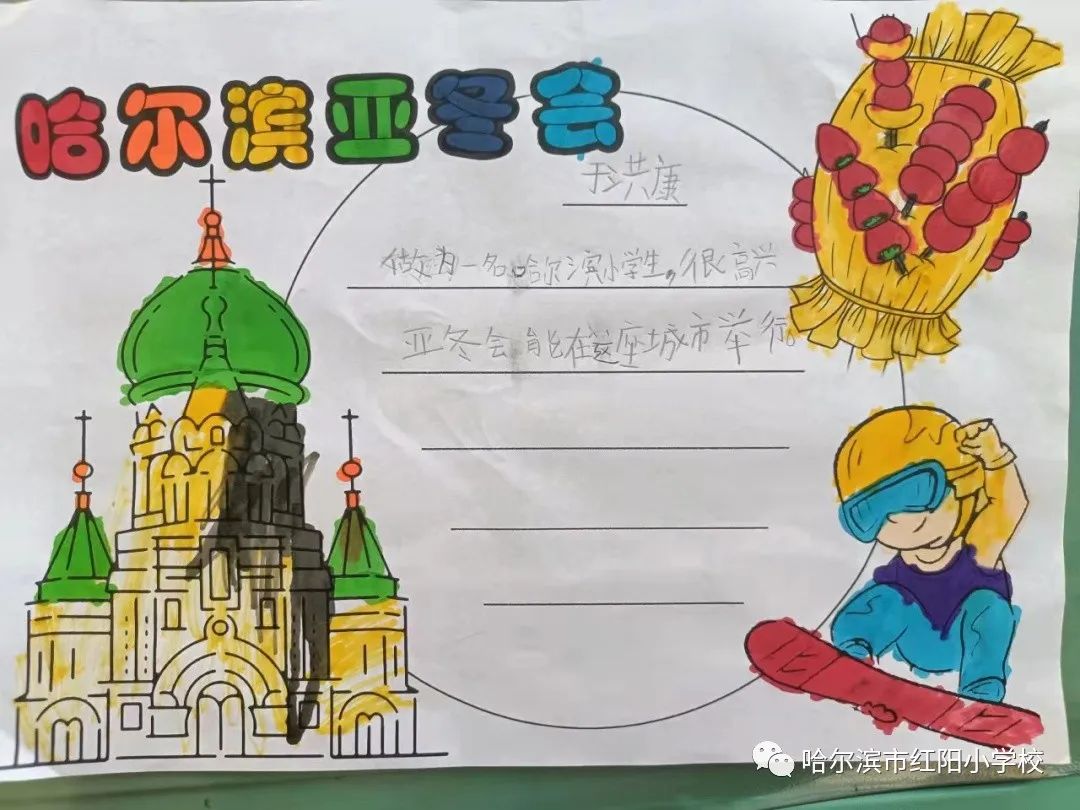 哈尔滨亚冬会
于洪康
做为一名哈尔滨小学生,很高兴
亚冬会能在这座城市举行。
哈尔滨市红阳小学校